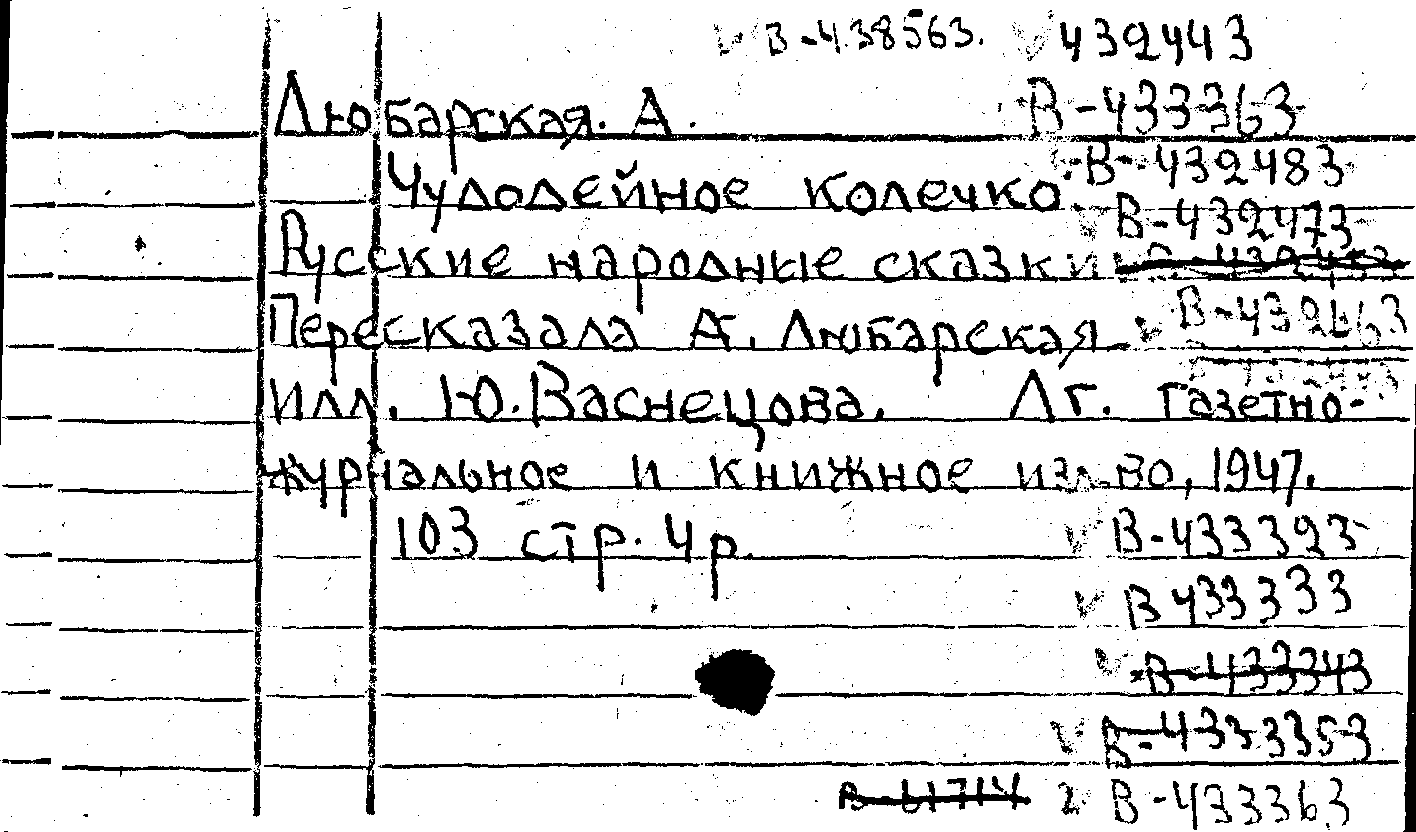 В-438563. 432443
Любарская. А. В-433363
Чудодейное колечко. В-432483
В-432473
Русские народные сказки
Пересказала А. Любарская В-432463
Илл. Ю. Васнецова. Лг. Газетно-
журнальное и книжное изд-во, 1947.
103 стр. 4 р. В-433393
В 433333
В-433343
В-433353
В-61714 В-433363